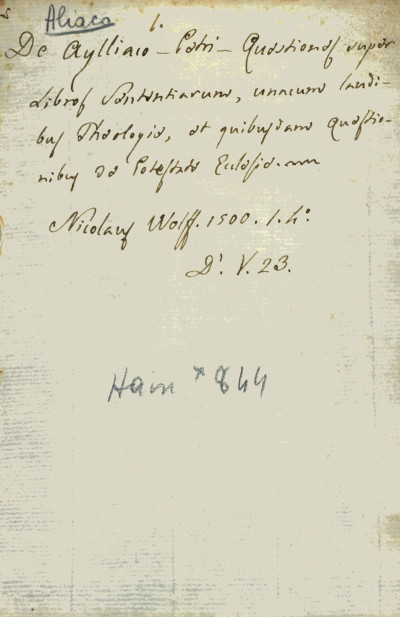 Aliaco
1.
De Aylliaco – Petri – Quæstiones super
Libros Sententiarum, unacum laudi-
bus Theologiæ, et quibusdam Quæstio-
nibus de Potestate Eclesiæ.
Nicolaus Wolff. 1500. 1. 4º.
D'. V. 23.
Hain * 844